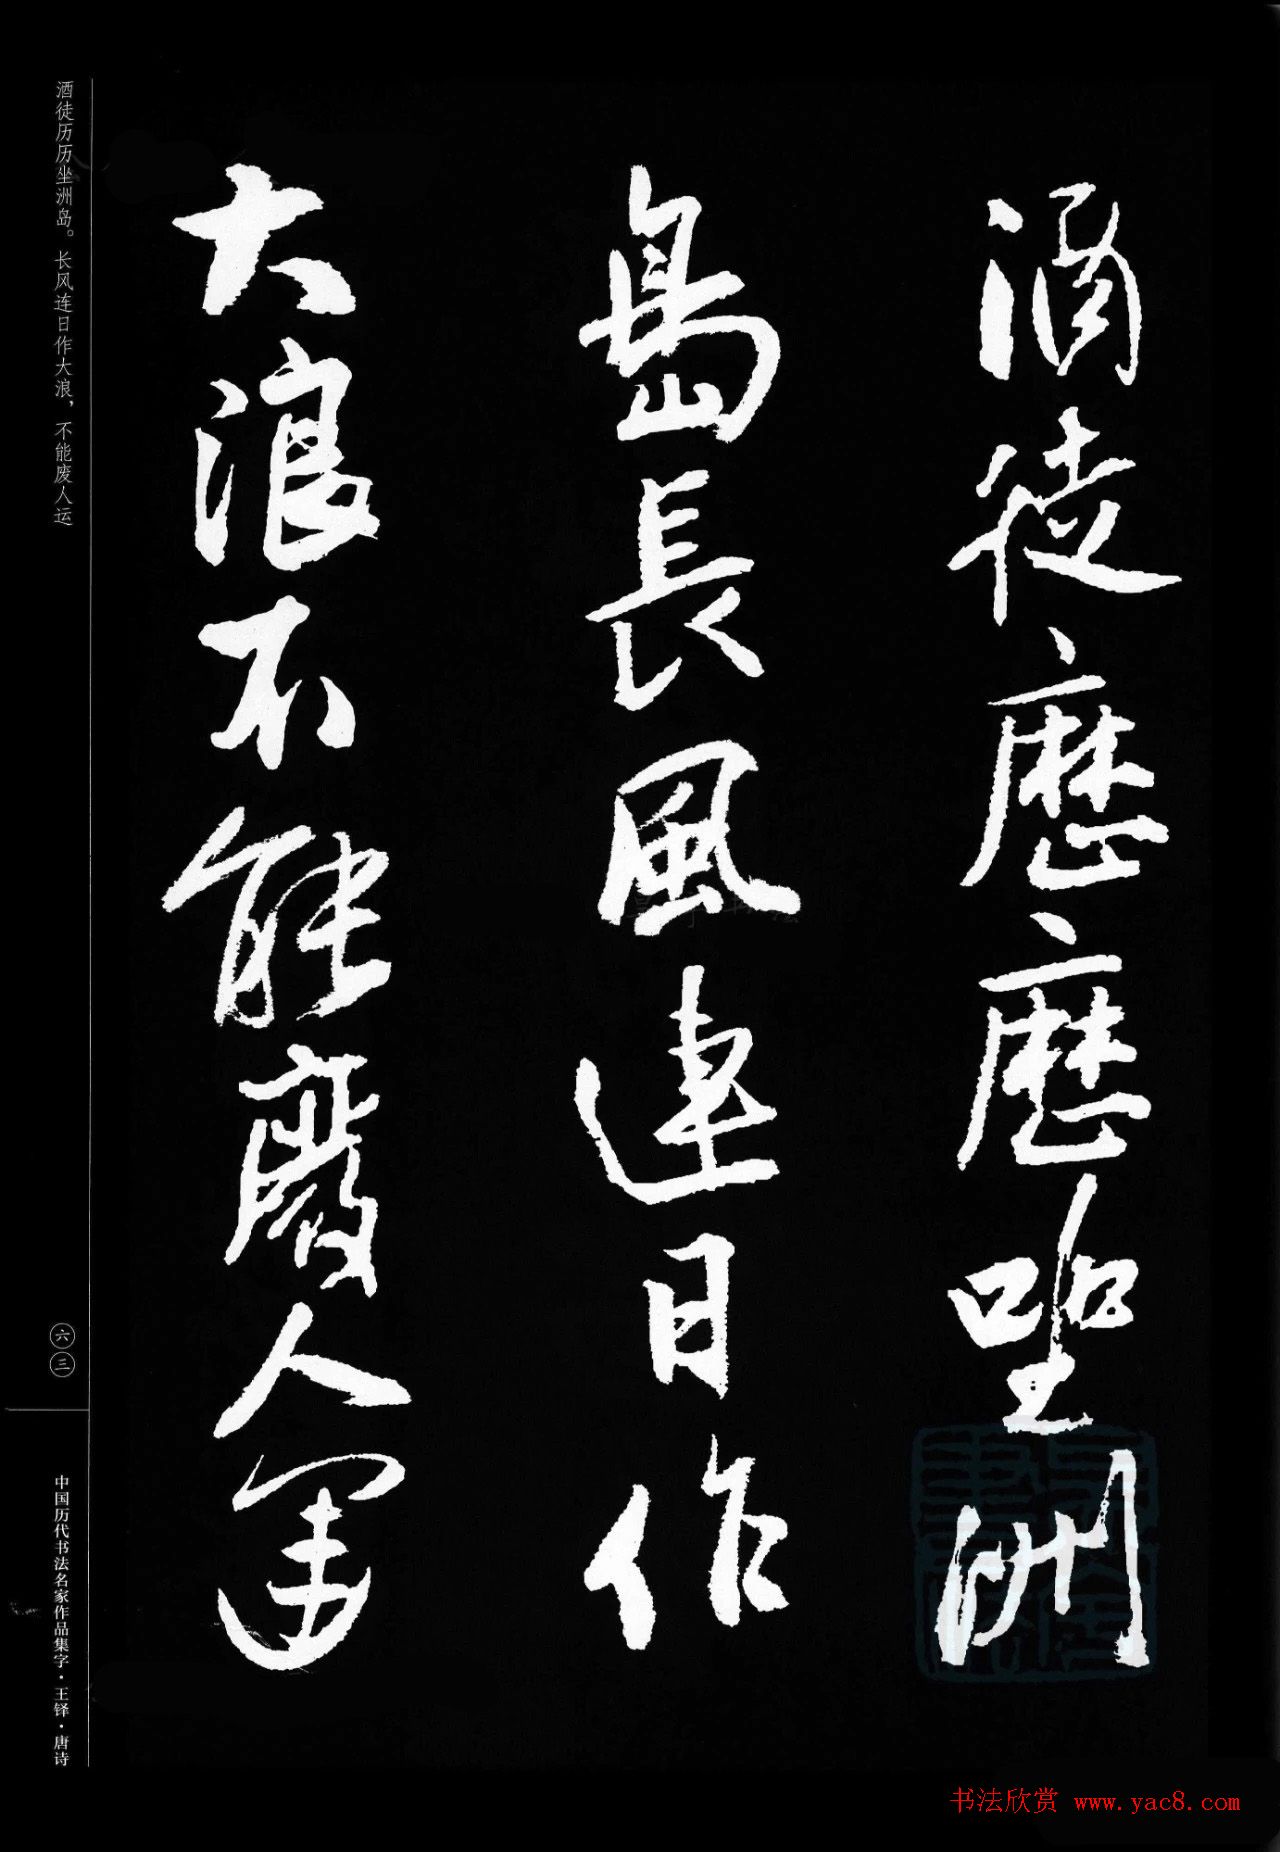 酒徒歷歷坐洲
島長風連日作
大浪不能廢人運
酒徒历历坐洲岛。长风连日作大浪，不能废人运
六三
中国历代书法名家作品集字·王铎·唐诗
书法欣赏 www.yac8.com